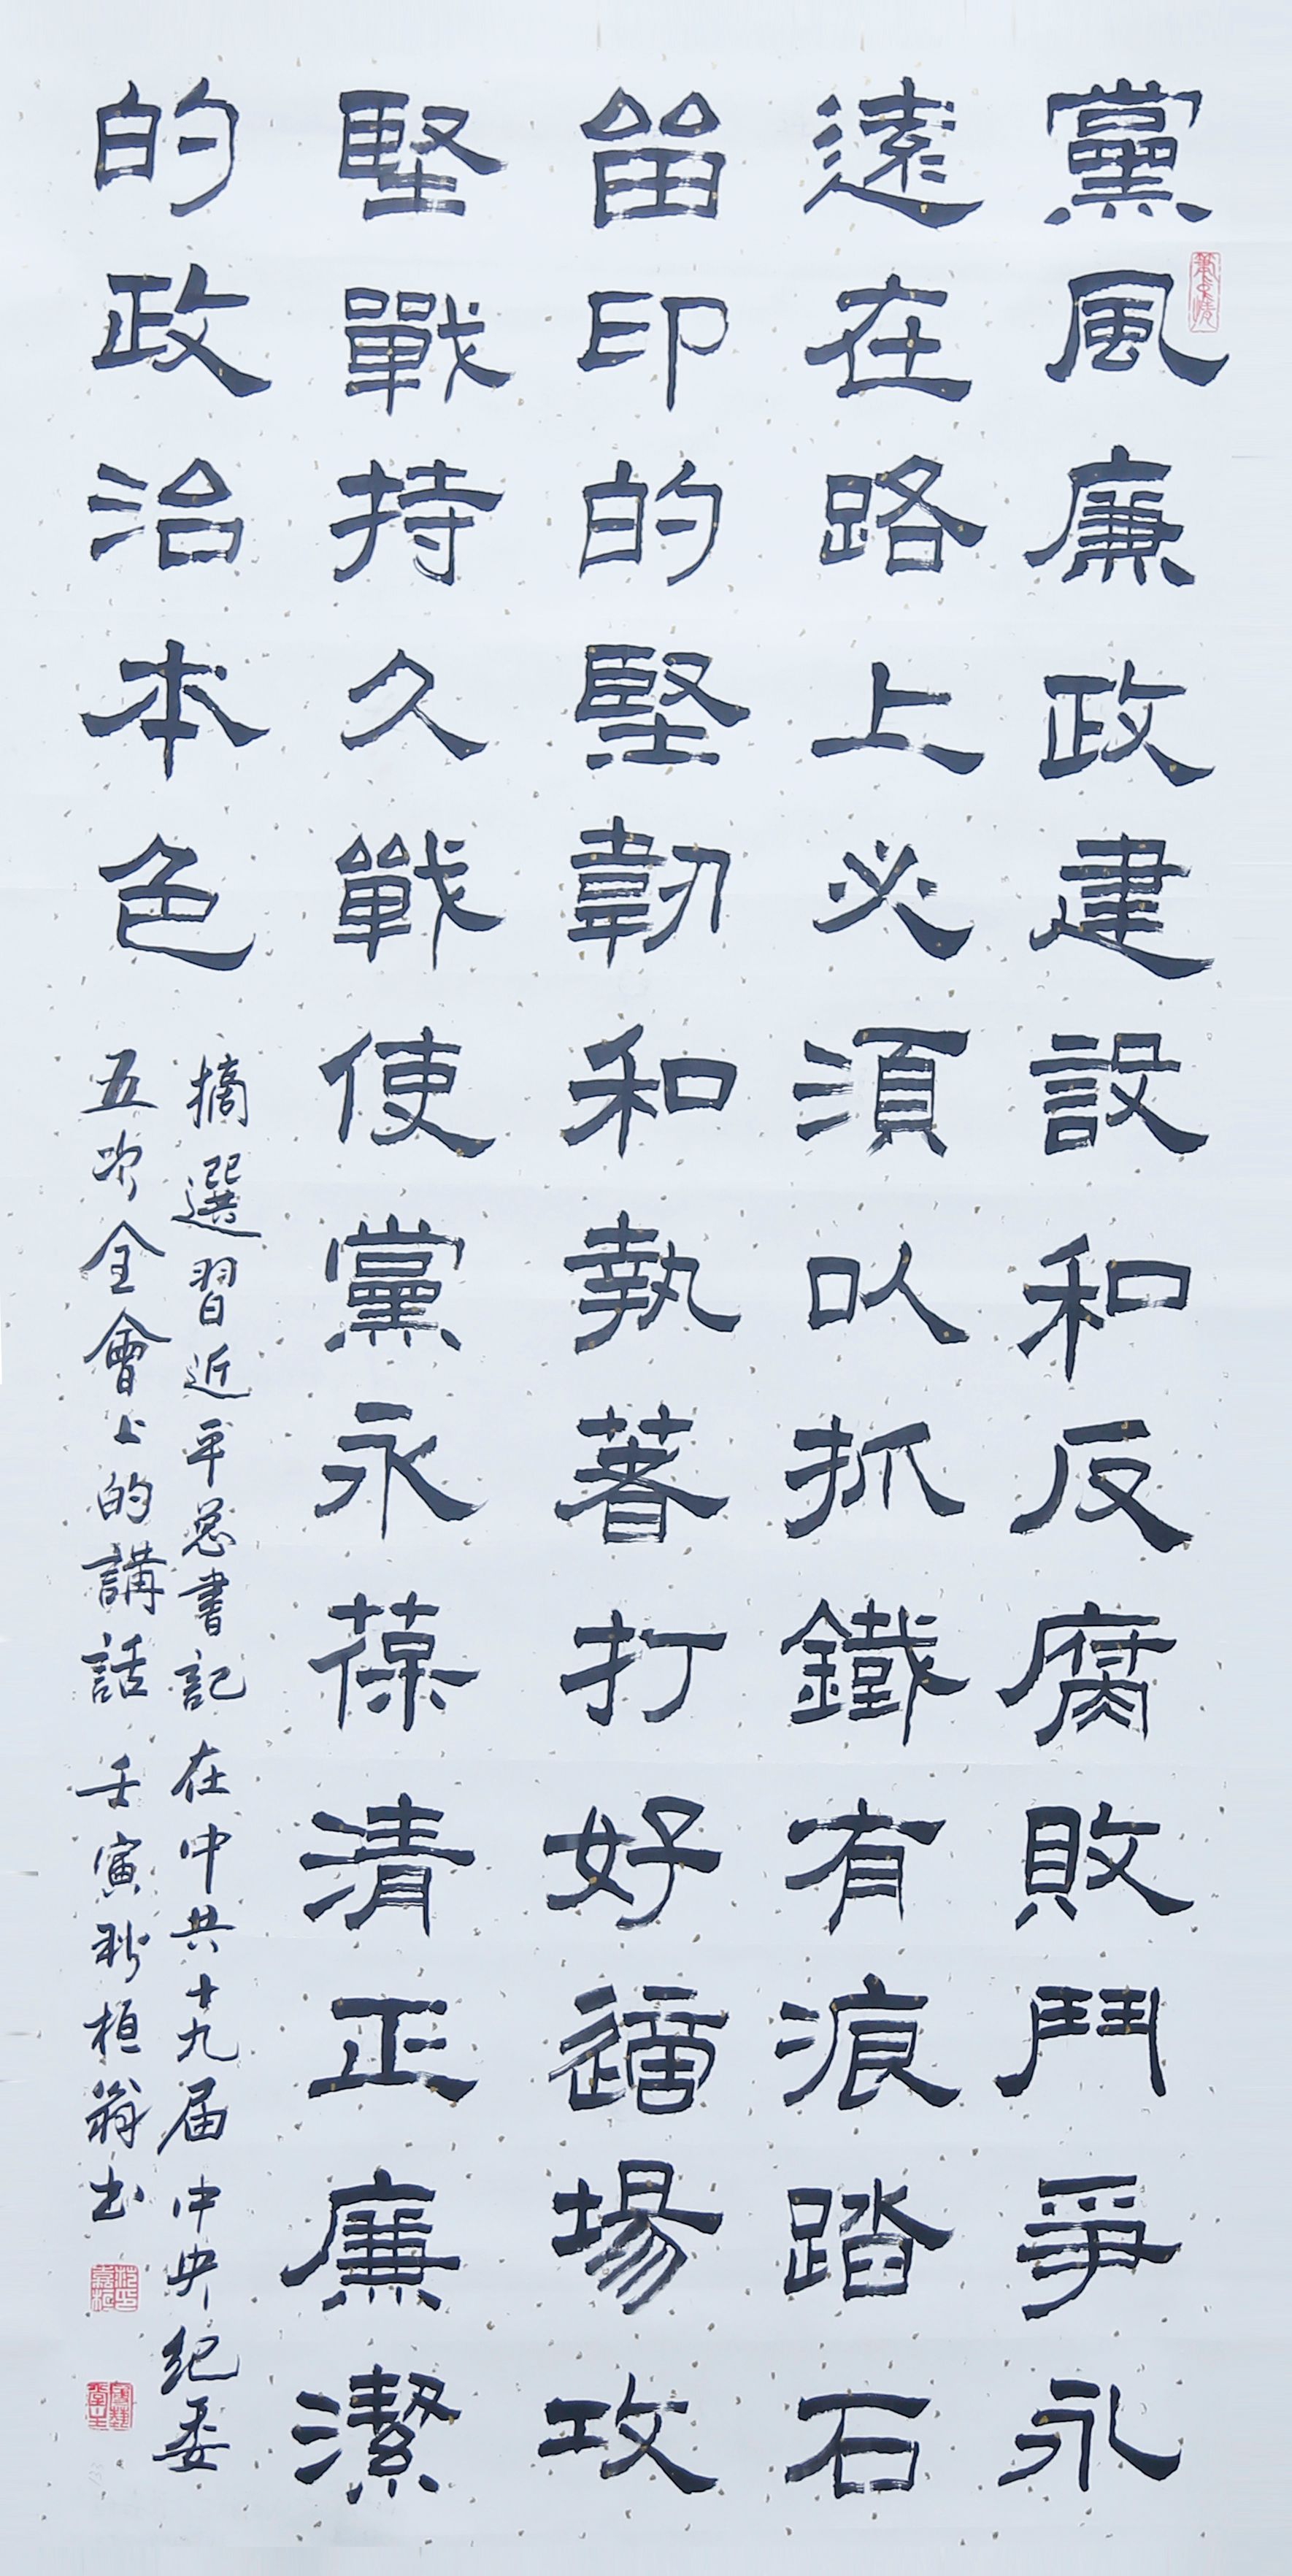 黨風廉政建設和反腐敗鬥爭永
遠在路上必須以抓鐵有痕踏石
留印的堅韌和執著打好這場攻
堅戰持久戰使黨永葆清正廉潔
的政治本色
摘選習近平總書記在中共十九届中央紀委
五次全會上的講話 壬寅秋桓翁書